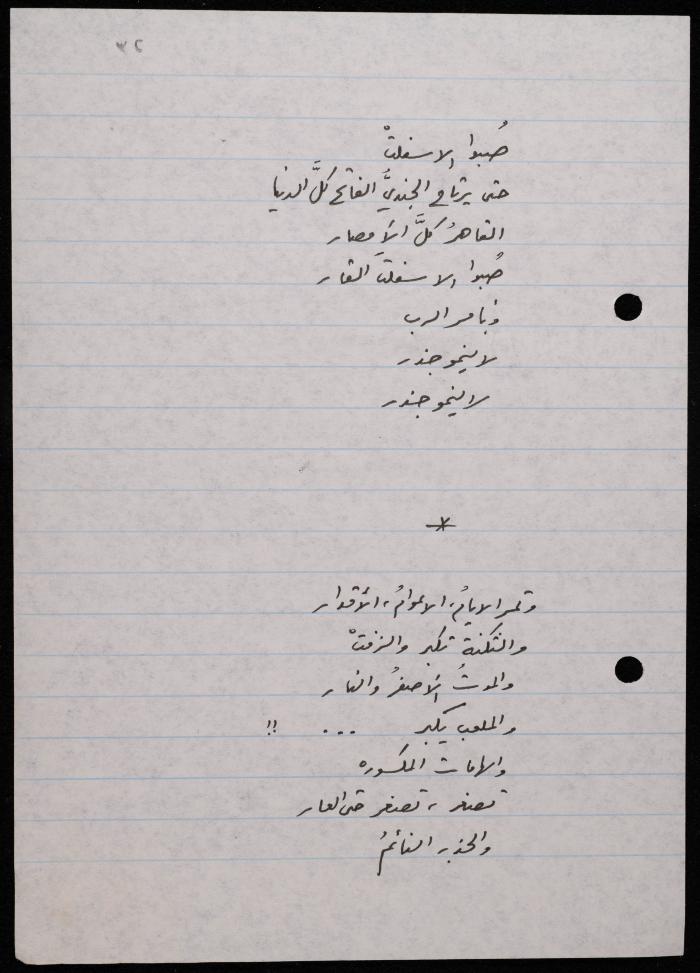 ٣٢
صُبوا الاسفلتْ
حتى يرتاح الجنديُّ الفاتح كلَّ الدنيا
القاهرُ كلَّ الأمصار
صُبوا الاسفلتَ القار
فبأمر الرب
لا ينمو جذر
لا ينمو جذر
*
وتمر الايامُ، الاعوامُ، الأقدار
والثكنة تكبر والزفتْ
والموتُ الأصفرُ والنار
والملعب يكبر ... !!
والهامات المكسوره
تصغر، تصغر حتى العار
والجذر النائمُ